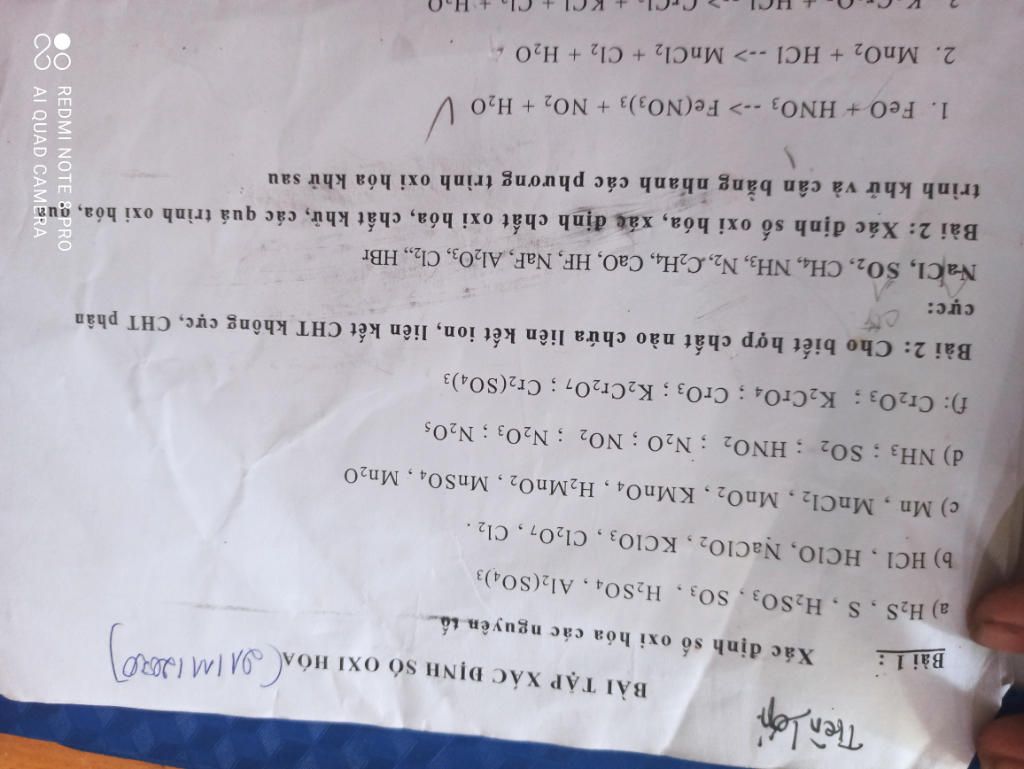 Thiên Lợi
BÀI TẬP XÁC ĐỊNH SỐ OXI HÓA
Bài 1: Xác định số oxi hóa các nguyên tố
a) H₂S , S , H₂SO₃ , SO₃ , H₂SO₄ , Al₂(SO₄)₃
b) HCl , HClO, NaClO₂ , KClO₃ , Cl₂O₇ , Cl₂ .
c) Mn , MnCl₂ , MnO₂ , KMnO₄ , H₂MnO₂ , MnSO₄ , Mn₂O
d) NH₃ ; SO₂ ; HNO₂ ; N₂O ; NO₂ ; N₂O₃ ; N₂O₅
f): Cr₂O₃ ; K₂CrO₄ ; CrO₃ ; K₂Cr₂O₇ ; Cr₂(SO₄)₃
Bài 2: Cho biết hợp chất nào chứa liên kết ion, liên kết CHT không cực, CHT phân
cực:
NaCl, SO₂, CH₄, NH₃, N₂, C₂H₄, CaO, HF, NaF, Al₂O₃, Cl₂,, HBr
Bài 2: Xác định số oxi hóa, xác định chất oxi hóa, chất khử, các quá trình oxi hóa, quá
trình khử và cân bằng nhanh các phương trình oxi hóa khử sau
1. FeO + HNO₃ --> Fe(NO₃)₃ + NO₂ + H₂O
2. MnO₂ + HCl --> MnCl₂ + Cl₂ + H₂O
3. K₂Cr₂O₇ + HCl --> CrCl₃ + KCl + Cl₂ + H₂O
REDMI NOTE 8 PRO
AI QUAD CAMERA